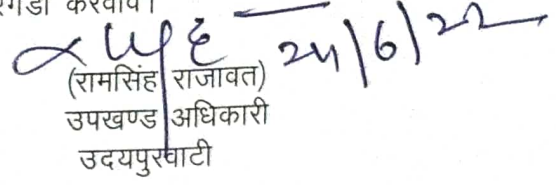 करवावें।
24/6/22
(रामसिंह राजावत)
उपखण्ड अधिकारी
उदयपुरवाटी